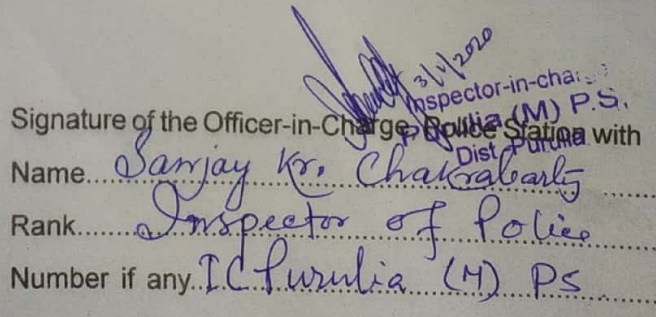 3/1/2020
Inspector-in-cha
Purulia (M) P.S.
Dist. Purulia
Signature of the Officer-in-Charge, Police Station with
Name.....Sanjay Kr. Chakrabarty
Rank.....Inspector of Police
Number if any..IC Purulia (M) PS